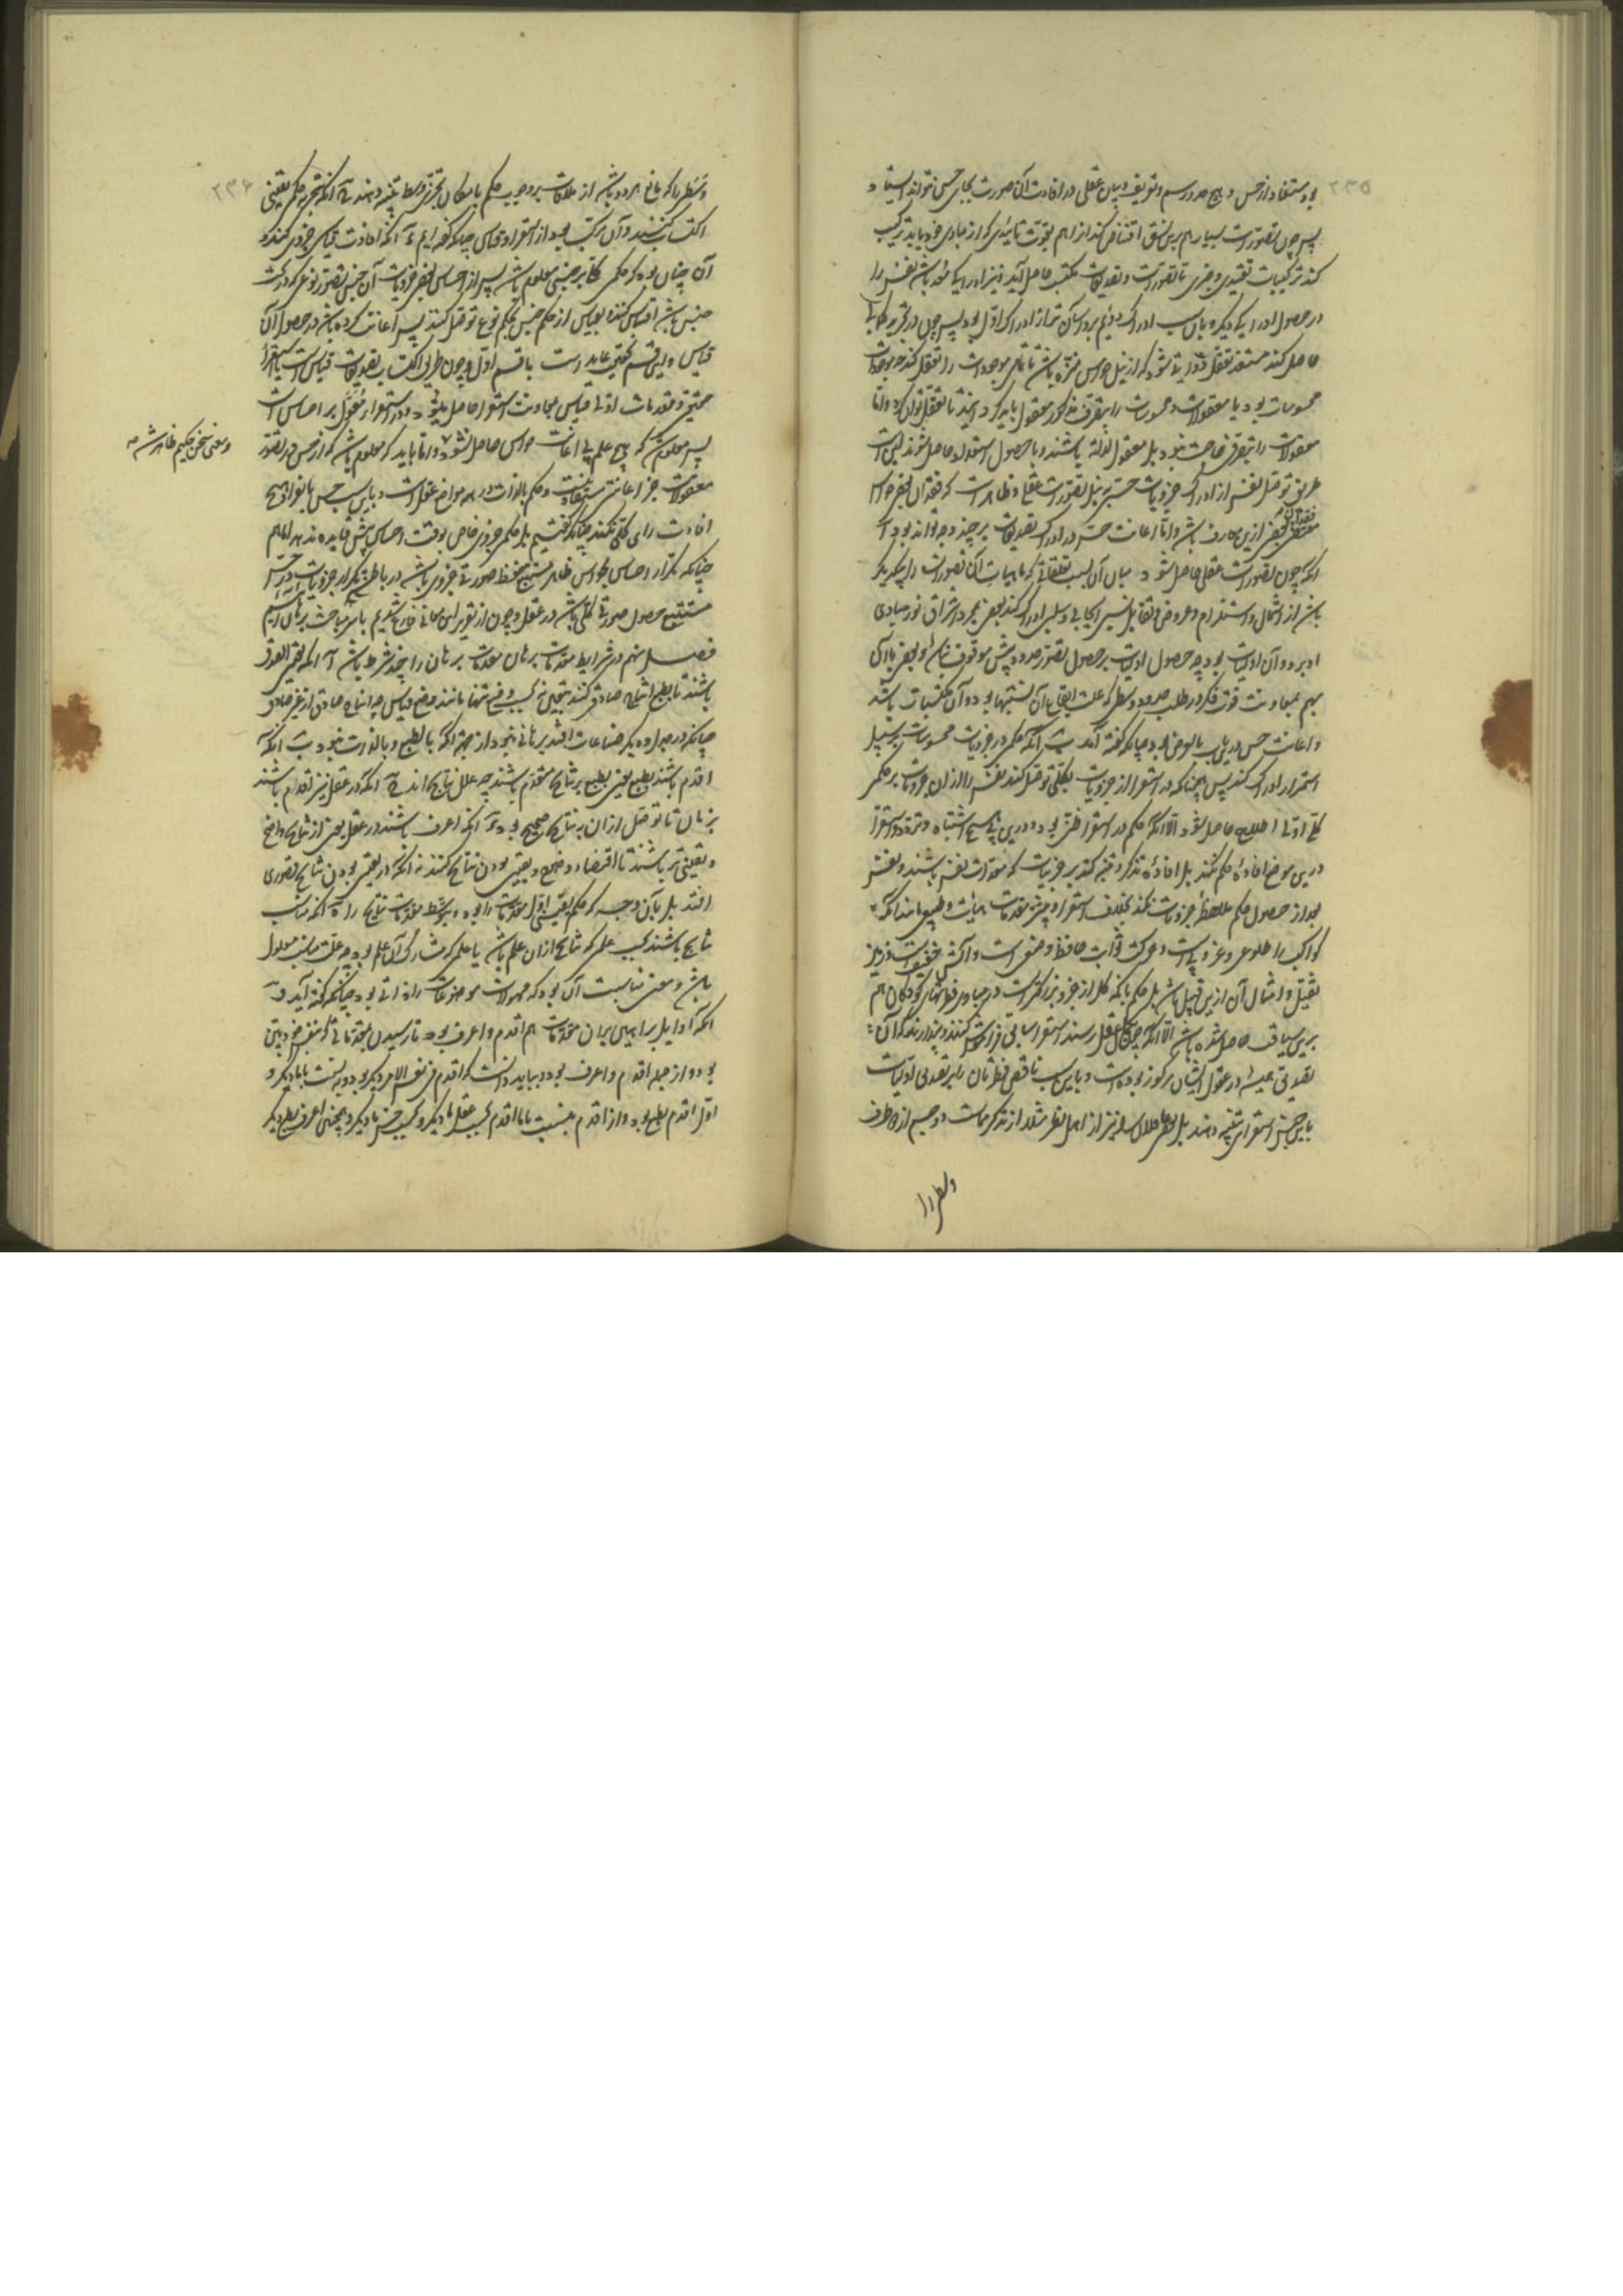 ۲۳۵
بود مستفاد از حس و هیچ حد و رسم و تعریف و بیان عقلی در افادت آن صورت بجای حس نتواند ایستاد
پس چون تصورات بسیار هم برین نسق اقتناص کند از آن هم بقوت ثانیه‌ای که از مبادی خود یابد ترکیب
کند ترکیبات تقییدی و خبری تا تصورات و تصدیقات مکتسب حاصل آید و نیز ادراکی معد باشد نفس را
در حصول ادراکی دیگر و باین سبب ادراک دوم برو آسان‌تر از ادراک اول بود پس چون در تجربه ملکه‌ای
حاصل کند مستعد تعقل ذواتی شود که از نیل حواس منزه باشد تا تمامی موجودات را تعقل کند چه موجودات
محسوسات بود یا معقولات و محسوسات را بتصرف مذکور معقول باید کرد تا تعقل توان کرد و اما
معقولات را بتصرفی حاجت نبود بل معقول لذاته باشند و با حصول استعداد حاصل شوند اینست
طریق توصل نفس از ادراک جزویات حسی به نیل تصورات عقلی و ظاهر است که فقدان بعضی حواس
مقتضی فقدان بعضی ازین معارف باشد و اما اعانت حس در ادراک تصدیقات بر چند وجه تواند بود آ
آنکه چون تصورات عقلی حاصل شود میان آن بسبب تعلقاتی که ماهیات آن تصورات را بیکدیگر
باشد از اشتمال و استلزام و عروض و تقابل نسبی ایجابی و سلبی ادراک کند بعضی بمجرد اشراق نور مبادی
او بر او و آن اولیات بود چه حصول اولیات بر حصول تصور حدود بیش موقوف نباشد و بعضی با آن
بهم بمعاونت قوت فکر در طلب حدود وسطی که علت ایقاع آن نسبتها بود و آن مکتسبات باشد
و اعانت حس درین باب بالعرض بود چنانکه گفته آمد ب آنکه حکم در جزویات محسوسات بر سبیل
استمرار ادراک کند پس همچنانکه در استقرا از جزویات بکلی توصل کند نفس را از آن جزویات بر حکمی
کلی اولی اطلاع حاصل شود الا آنکه حکم در استقرا ظنی بود و درین هیچ اشتباه و تردد و استقرا
درین موضع افادهٔ حکم نکند بل افادهٔ تذکر و تنبه کند بر جزئیات که معدات نفس باشند و نفس
بعد از حصول حکم ملاحظهٔ جزویات نکند بخلاف استقرا و بیشتر مقدمات هیأت و طبیعی مانند آنکه
کواکب را طلوعی و غروبی است و حرکت ثوابت حافظ وضعی است و آتش خفیف است و زمین
ثقیل و امثال آن ازین قبیل باشد بل حکم بآنکه کل از جزو بزرگتر است در مبادی فطرتهای کودکان هم
برین سیاقت حاصل شده باشد الا آنکه چون بکمال عقل رسند استقراء سابق فراموش کنند و پندارند که آن
تصدیق همیشه در عقول ایشان مرکوز بوده است و باین سبب ناقص فطرتان را بر تصدیق اولیات
باین جنس استقرا تنبیه دهند بل بعضی عاقلان را نیز از اهل نظر مثلا از تذکر مماست دو جسم از دو طرف
وسطی را
۲۳۶
وسطی را که مانع هر دو باشد از ملاقات بر وجوب حکم بامکان تجزی وسط تنبیه دهند ج آنکه بتجربه حکم یقینی
اکتساب کنند و آن مرکب بود از استقرا و قیاس چنانکه گفته‌ایم د آنکه افادت قیاسی جزوی کند و
آن چنان بود که حکمی کلی بر جنسی معلوم باشد پس از احساس بعضی جزویات آن جنس تصور نوعی که در تحت
جنس باشد اقتباس کنند و بقیاس از حکم جنس بحکم نوع توصل کنند پس اعانت کرده باشد در حصول آن
قیاس و این قسم بحقیقت عاید است با قسم اول و چون طریق اکتساب تصدیقات قیاس است یا استقرا
حقیقی و مقدمات اولی قیاس بمعاونت استقرا حاصل میشود و استقرا معول بر احساس است
پس معلوم شد که هیچ علم بی اعانت حواس حاصل نشود و اما باید که معلوم باشد که از حس در تصور
معقولات جز اعانتی مستفاد نیست و حکم بالذات در همه مواضع عقل راست و باین سبب حس بانفراد هیچ
افادت رای کلی نکند چنانکه گفتیم بل حکمی جزوی خاص بوقت احساس بیش فایده ندهد اما هم
چنانکه تکرار احساس بحواس ظاهر مستتبع حفظ صورتی جزوی باشد در باطن تکرار جزویات در حس
مستتبع حصول صورتی کلی باشد در عقل و چون از تقریر این معانی فارغ شدیم با سر مباحث برهان آییم
فصل نهم در شرایط مقدمات برهان مقدمات برهان را چند شرط باشد آ آنکه یقینی الصدق
باشند تا بطبع انتاج صادق کنند بتعیین نه بحسب وضع تنها مانند وضع قیاس چه انتاج صادق از غیر صادق
چنانکه در جدل و دیگر صناعات افتد برهانی نبود از جهت آنکه بالطبع و بالذات نبود ب آنکه
اقدم باشند بطبع یعنی بطبع بر نتایج مقدم باشند چه علل نتایج‌اند ج آنکه در عقل نیز اقدم باشند
بزمان تا توصل از آن به نتایج صحیح بود د آنکه اعرف باشند در عقل یعنی از نتایج واضح
و یقینی‌تر باشند تا اقتضاء وضوح و یقینی بودن نتایج کنند نه آنکه در یقینی بودن نتایج قصوری
افتد بل بآن وجه که حکم یقینی اول مقدمات را بود و بتوسط مقدمات نتایج را ه آنکه مناسب
نتایج باشند بحسب علمی که نتایج از آن علم باشد یا علمی که مشارک آن علم بود چه علت مناسب معلول
باشد و معنی مناسبت آن بود که محمولات موضوعات را ذاتی بود چنانکه گفته آید و
آنکه اوایل براهین بر آن مقدمات هم اقدم و اعرف بود تا رسیدن بمقدماتی که بنفس خود بین
بود و از همه اقدم و اعرف بود و بباید دانست که اقدم فی نفس الامر دیگر بود و به نسبت با ما دیگر و
اول اقدم بطبع بود و از اقدم بنسبت با ما اقدم بحسب عقل ما دیگر و بحسب حس ما دیگر و همچنین اعرف بطبع دیگر
و معنی سخن حکیم ظاهر شد